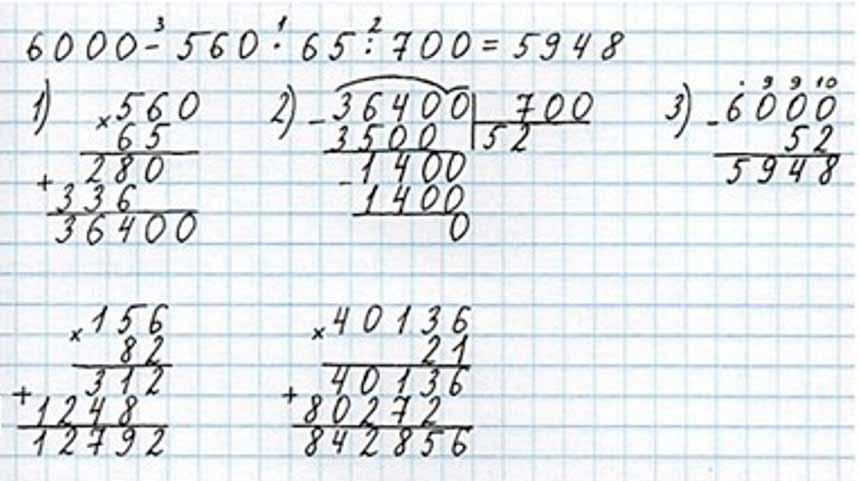 3 1 2
6000 - 560 · 65 : 700 = 5948
1) × 560
65
+ 280
336
36400
2) - 36400 | 700
3500 | 52
- 1400
1400
0
3) · 9 9 10
- 6000
52
5948
× 156
82
+ 312
1248
12792
× 40136
21
+ 40136
80272
842856